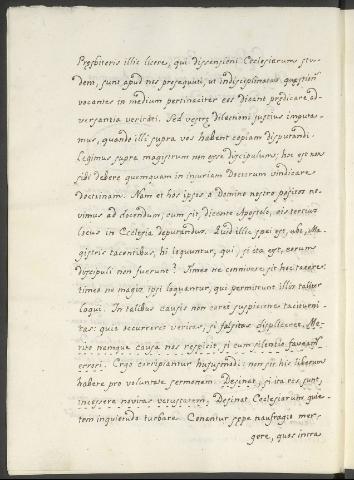 Presbiteris illic licere, qui dissensioni Ecclesiarum stu-
dent, sunt apud nos persequuti, ut indisciplinatas quæstiones
vocantes in medium pertinaciter eos dicant prædicare ad-
versantia veritati. Sed vestræ dilectioni justius imputa-
mus, quando illi supra vos habent copiam disputandi.
Legimus supra magistrum non esse discipulum; hoc est non
sibi debere quemquam in injuriam Doctorum vindicare
doctrinam. Nam et hos ipsos a Domino nostro positos no-
vimus ad docendum, cum sit, dicente Apostolo, eis tertius
locus in Ecclesia deputandus. Quid illic spei est, ubi, Ma-
gistris tacentibus, hi loquuntur, qui, si ita est, eorum
discipuli non fuerunt? Timeo ne connivere sit hoc tacere:
timeo ne magis ipsi loquantur, qui permittunt illis taliter
loqui. In talibus causis non caret suspicione taciturni-
tas: quia occurreret veritas, si falsitas displiceret. Me-
rito namque causa nos respicit, si cum silentio faveamus
errori. Ergo corripiantur hujusmodi: non sit his liberum
habere pro voluntate sermonem. Desinat, si ita res sunt,
incessere novitas vetustatem. Desinat Ecclesiarum quie-
tem inquietudo turbare. Conantur sæpe naufragio mer-
gere, quos intra